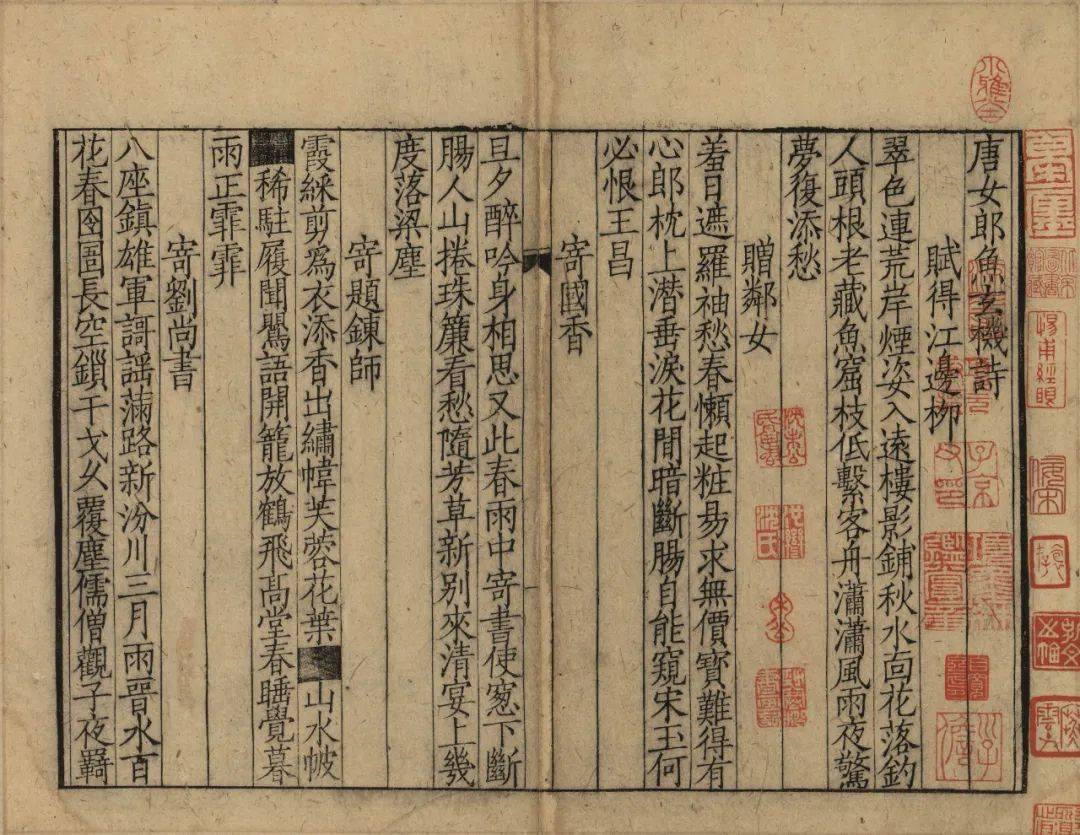 唐女郎魚玄機詩
賦得江邊柳
翠色連荒岸煙姿入遠樓影鋪秋水面花落釣
人頭根老藏魚窟枝低繫客舟瀟瀟風雨夜驚
夢復添愁
贈鄰女
羞日遮羅袖愁春懶起粧易求無價寶難得有
心郎枕上潛垂淚花間暗斷腸自能窺宋玉何
必恨王昌
寄國香
旦夕醉吟身相思又此春雨中寄書使窓下斷
腸人山捲珠簾看愁隨芳草新別來清宴上幾
度落梁塵
寄題鍊師
霞綵剪爲衣添香出繡幃芙蓉花葉山水帔
稀駐履聞鸎語開籠放鶴飛髙堂春睡覺暮
雨正霏霏
寄劉尚書
八座鎮雄軍謌謡滿路新汾川三月雨晉水百
花春囹圄長空鎖干戈久覆塵儒僧觀子夜羇